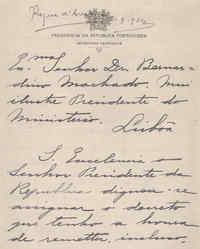 PRESIDENCIA DA REPUBLICA PORTUGUESA
Exmo
Senhor Dr. Bernar-
dino Machado. Mui
illustre Presidente do
Ministerio.
Lisbôa
S. Excelencia o
Senhor Presidente da
Republica dignou-se
assignar o decreto
que tenho a honra
de remetter, incluso.